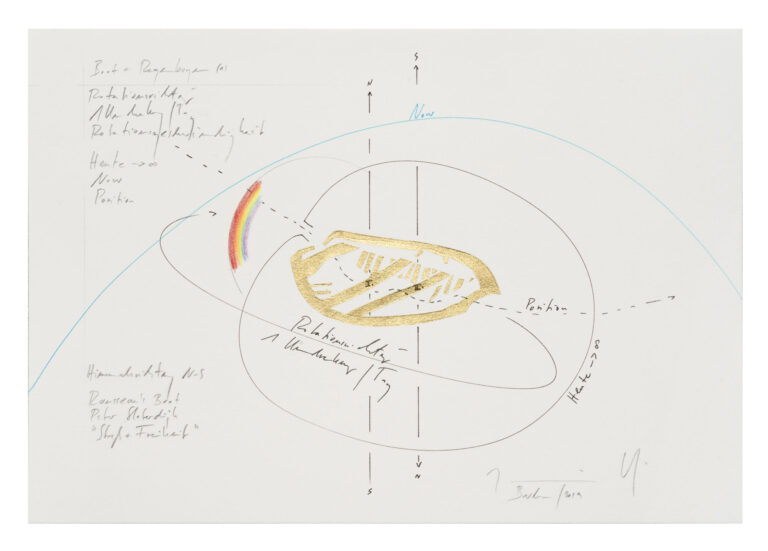 S
N
Boot + Regenbogen
Rotationsrichtung
1 Umdrehung / Tag
Rotationsgeschwindigkeit
Now
Heute → ∞
Now
Position
Position
Rotationsrichtung
1 Umdrehung / Tag
Heute → ∞
Himmelsrichtung N-S
Rousseau's Boot
Peter Sloterdijk
"Streß + Freiheit"
N
S
Berlin /2019